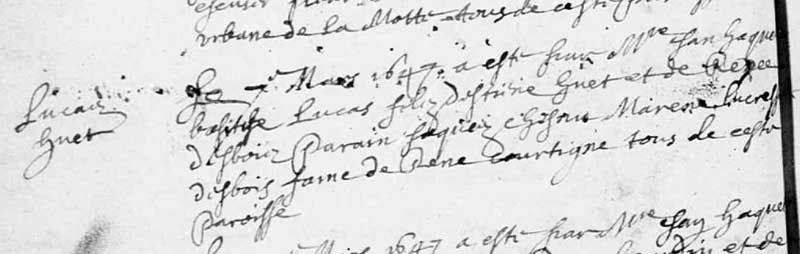 urbane de la Motte tous de ceste
Lucas
huet
Le 7e Mars 1647 a esté par Mre Jan haque
baptisé Lucas filz destiene huet et de Renee
desboiz Parain Jaques Marene Lucresse
desbois fame de Rene Courtigne tous de ceste
Paroisse
Mars 1647 a esté par Mre Jan haque
et de